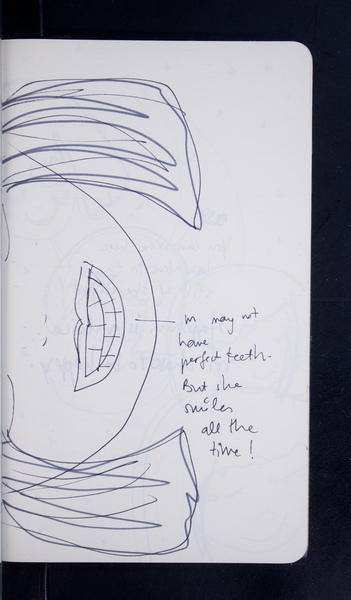 m may not
have
perfect teeth.
But she
smiles
all the
time!